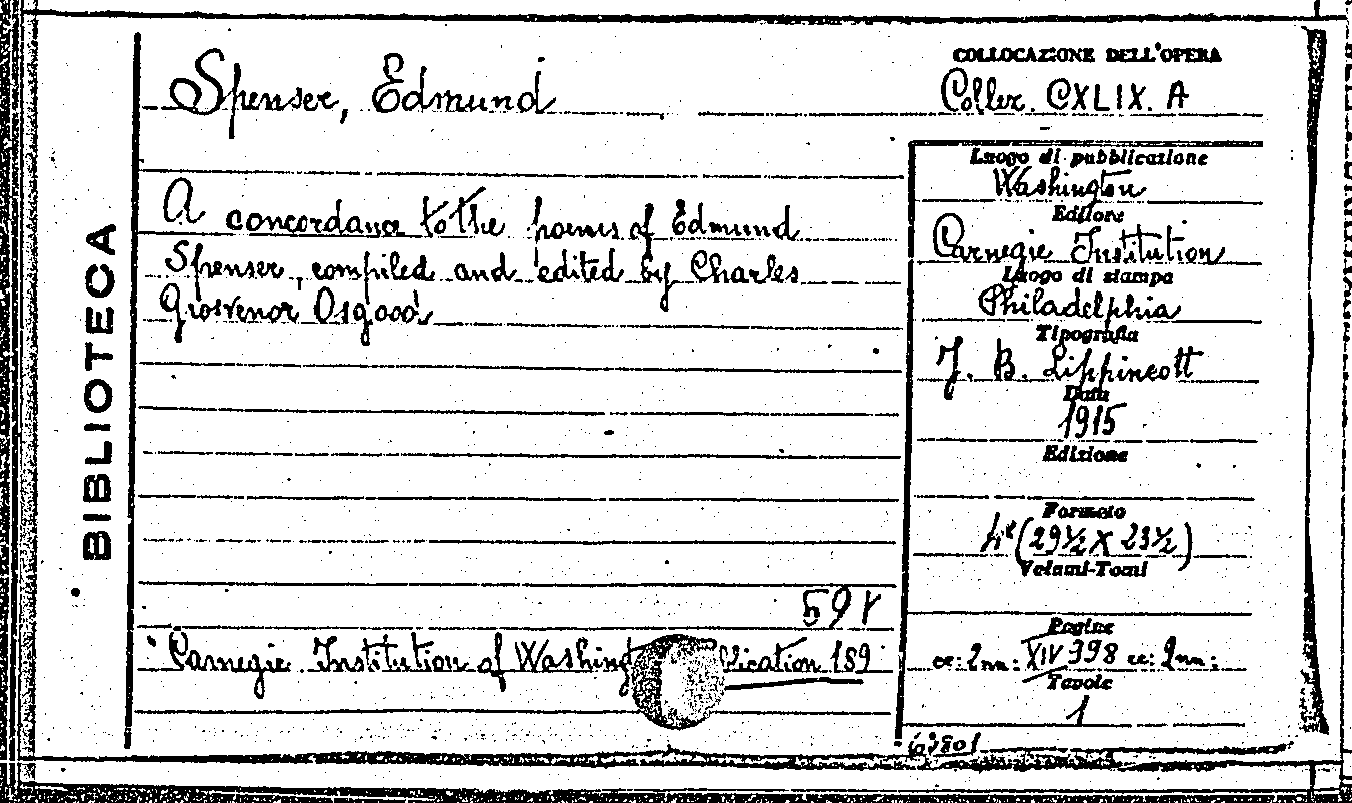 BIBLIOTECA
Spenser, Edmund
COLLOCAZIONE DELL'OPERA
Coller. CXLIX. A
A concordance to the poems of Edmund
Spenser, compiled and edited by Charles
Grosvenor Osgood
Luogo di pubblicazione
Washington
Editore
Carnegie Institution
Luogo di stampa
Philadelphia
Tipografia
J. B. Lippincott
Data
1915
Edizione
Formato
4° (29½ X 23½)
Volumi-Tomi
Pagine
cc: 2nn: XIV 398 cc: 2nn:
Tavole
1
Carnegie Institution of Washing lication 189